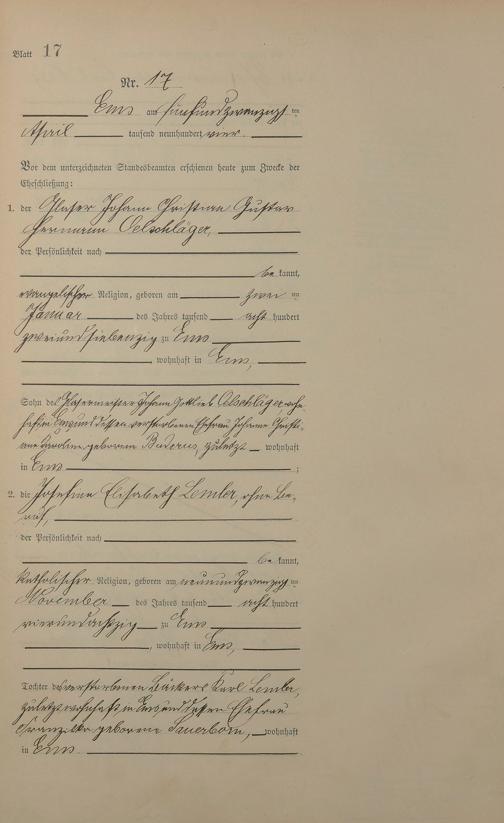 Blatt 17
Nr. 17
Ems am fünfundzwanzigsten
April tausend neunhundert vier.
Vor dem unterzeichneten Standesbeamten erschienen heute zum Zwecke der
Eheschließung:
1. der Glaser Johann Christian Gustav
Hermann Oelschläger,
der Persönlichkeit nach
bekannt,
evangelischer Religion, geboren am zweiten
Januar des Jahres tausend acht hundert
zweiundsiebenzig zu Ems
, wohnhaft in Ems,
Sohn des Glasermeister Johann Gottlieb Oelschläger, wohn-
haft in Ems und dessen verstorbenen Ehefrau Johanne Christi-
ane Karoline geborenen Buderus, zuletzt wohnhaft
in Ems ;
2. die Josefine Elisabeth Lemler, ohne Be-
ruf,
der Persönlichkeit nach
bekannt,
katholischer Religion, geboren am neunundzwanzigsten
November des Jahres tausend acht hundert
vierundachtzig zu Ems
, wohnhaft in Ems,
Tochter des verstorbenen Bäckers Karl Lemler,
zuletzt wohnhaft in Ems und dessen Ehefrau
Franziska geborene Sauerborn, wohnhaft
in Ems